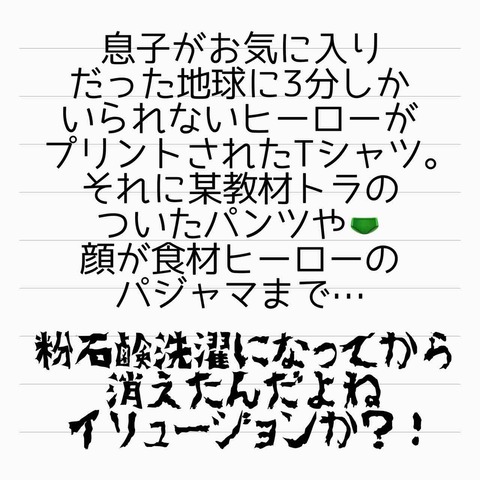 息子がお気に入り
だった地球に3分しか
いられないヒーローが
プリントされたTシャツ。
それに某教材トラの
ついたパンツや🩲
顔が食材ヒーローの
パジャマまで…
粉石鹸洗濯になってから
消えたんだよね
イリュージョンか?!